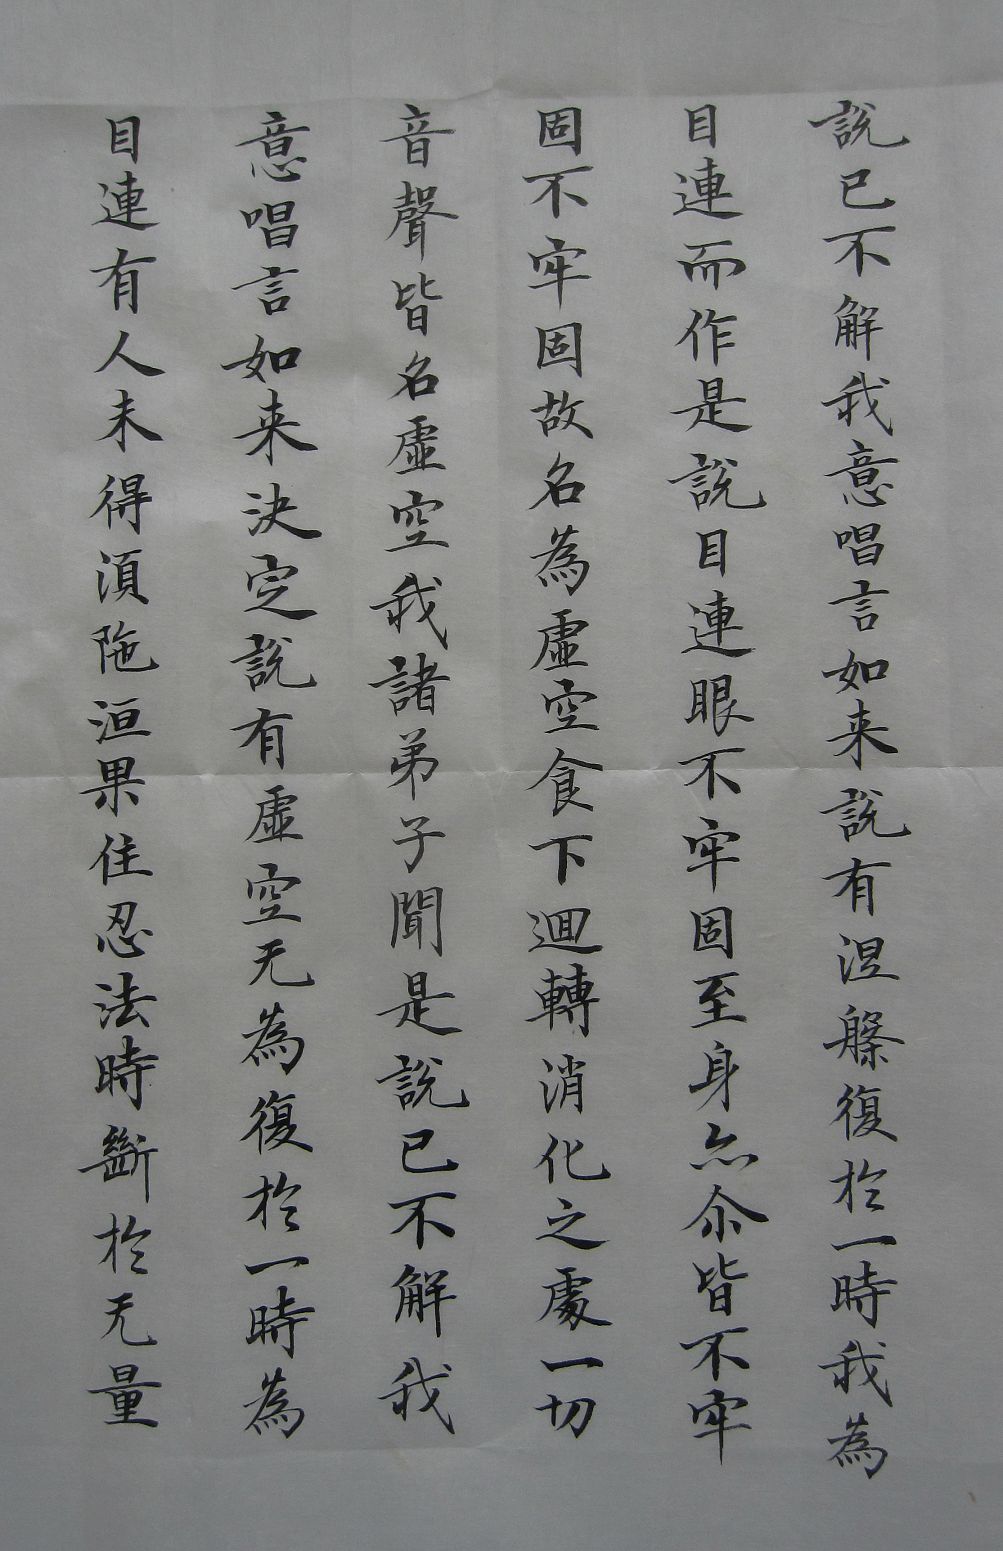 說已不解我意唱言如来說有涅槃復於一時我為
目連而作是說目連眼不牢固至身亦尒皆不牢
固不牢固故名為虛空食下迴轉消化之處一切
音聲皆名虛空我諸弟子聞是說已不解我
意唱言如来決定說有虛空无為復於一時為
目連有人未得湏陁洹果住忍法時斷於无量